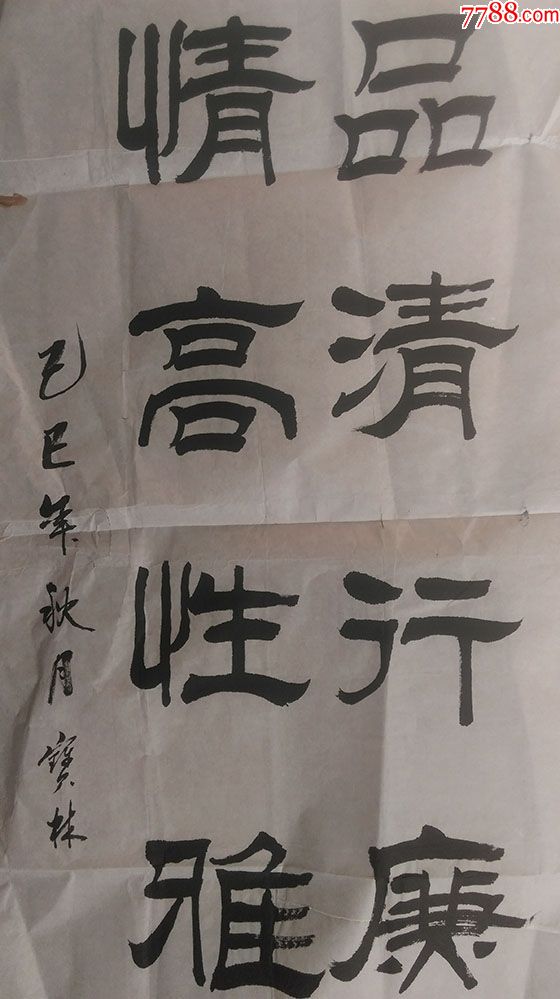 7788.com
品清行廉
情高性雅
己巳年秋月寶林